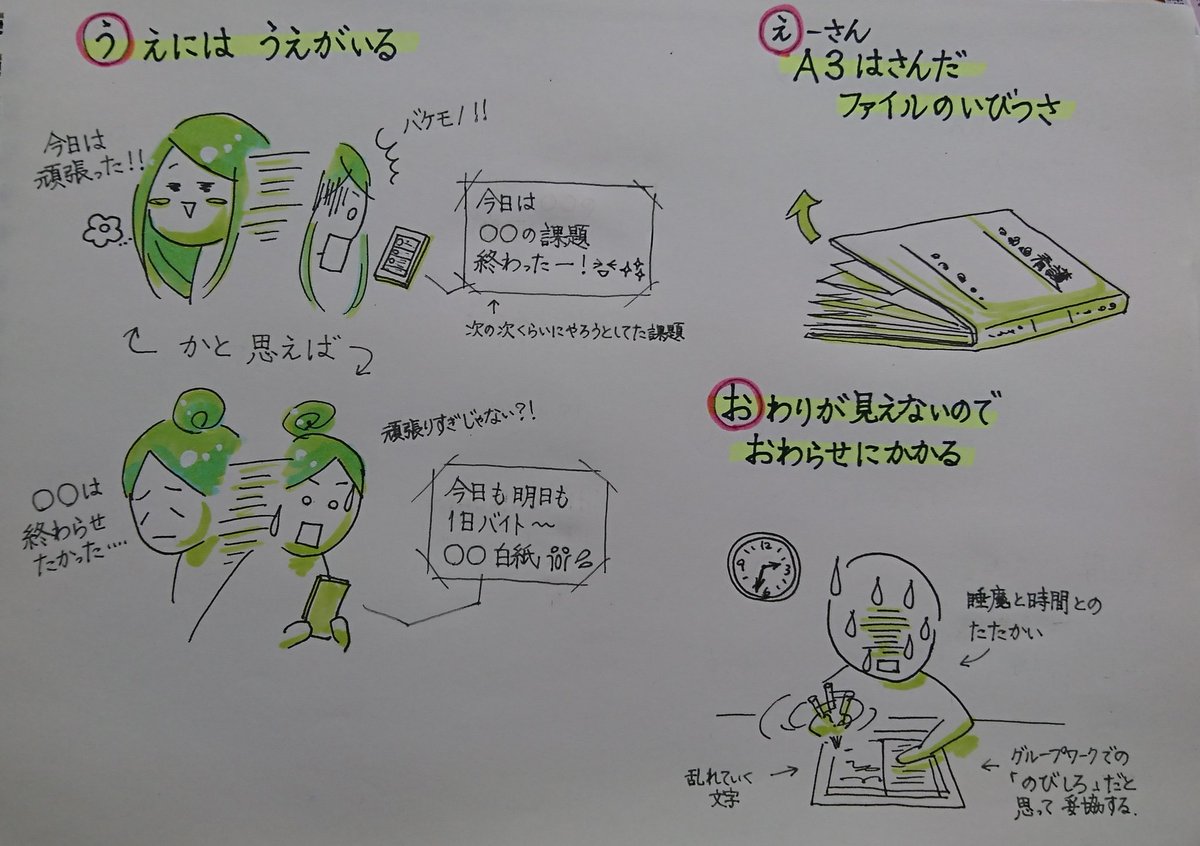 うえには うえがいる
今日は
頑張った!!
バケモノ!!
今日は
○○の課題
終わったー!
↑
次の次くらいにやろうとしてた課題
かと思えば
○○は
終わらせ
たかった‥‥
頑張りすぎじゃない?!
今日も明日も
1日バイト〜
○○白紙
えーさん
A3はさんだ
ファイルのいびつさ
看護
おわりが見えないので
おわらせにかかる
12
3
6
9
睡魔と時間との
たたかい
乱れていく
文字
グループワークでの
「のびしろ」だと
思って妥協する.